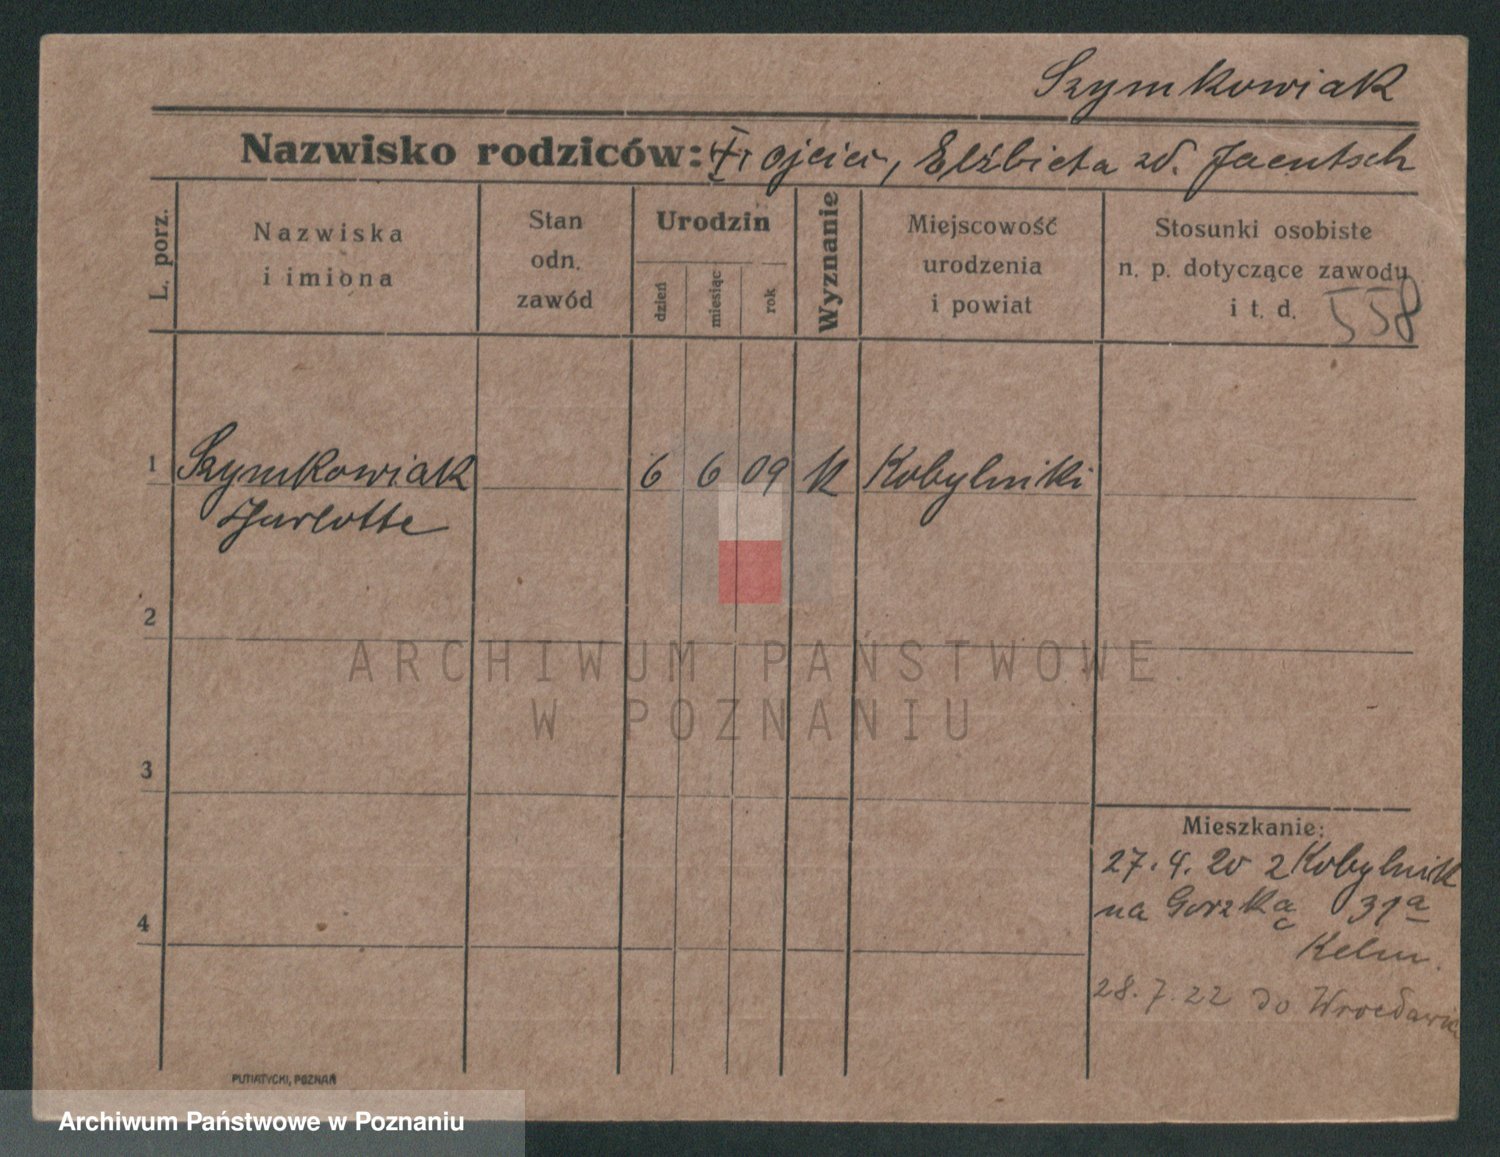 Szymkowiak
Nazwisko rodziców: Elżbieta zd. Jaentsch
L. porz.
Nazwiska
i imiona
Stan
odn.
zawód
Urodzin
dzień
miesiąc
rok
Wyznanie
Miejscowość
urodzenia
i powiat
Stosunki osobiste
n. p. dotyczące zawodu
i t. d. 558
1 Szymkowiak 6 6 09 k Kobylniki
Jarlotte
2
ARCHIWUM PAŃSTWOWE
W POZNANIU
3
Mieszkanie:
27.4.20 z Kobylnik
na Gorzką 31a
Kelm.
4
28.7.22 do Wrocławia
PUTIATYCKI, POZNAŃ
Archiwum Państwowe w Poznaniu